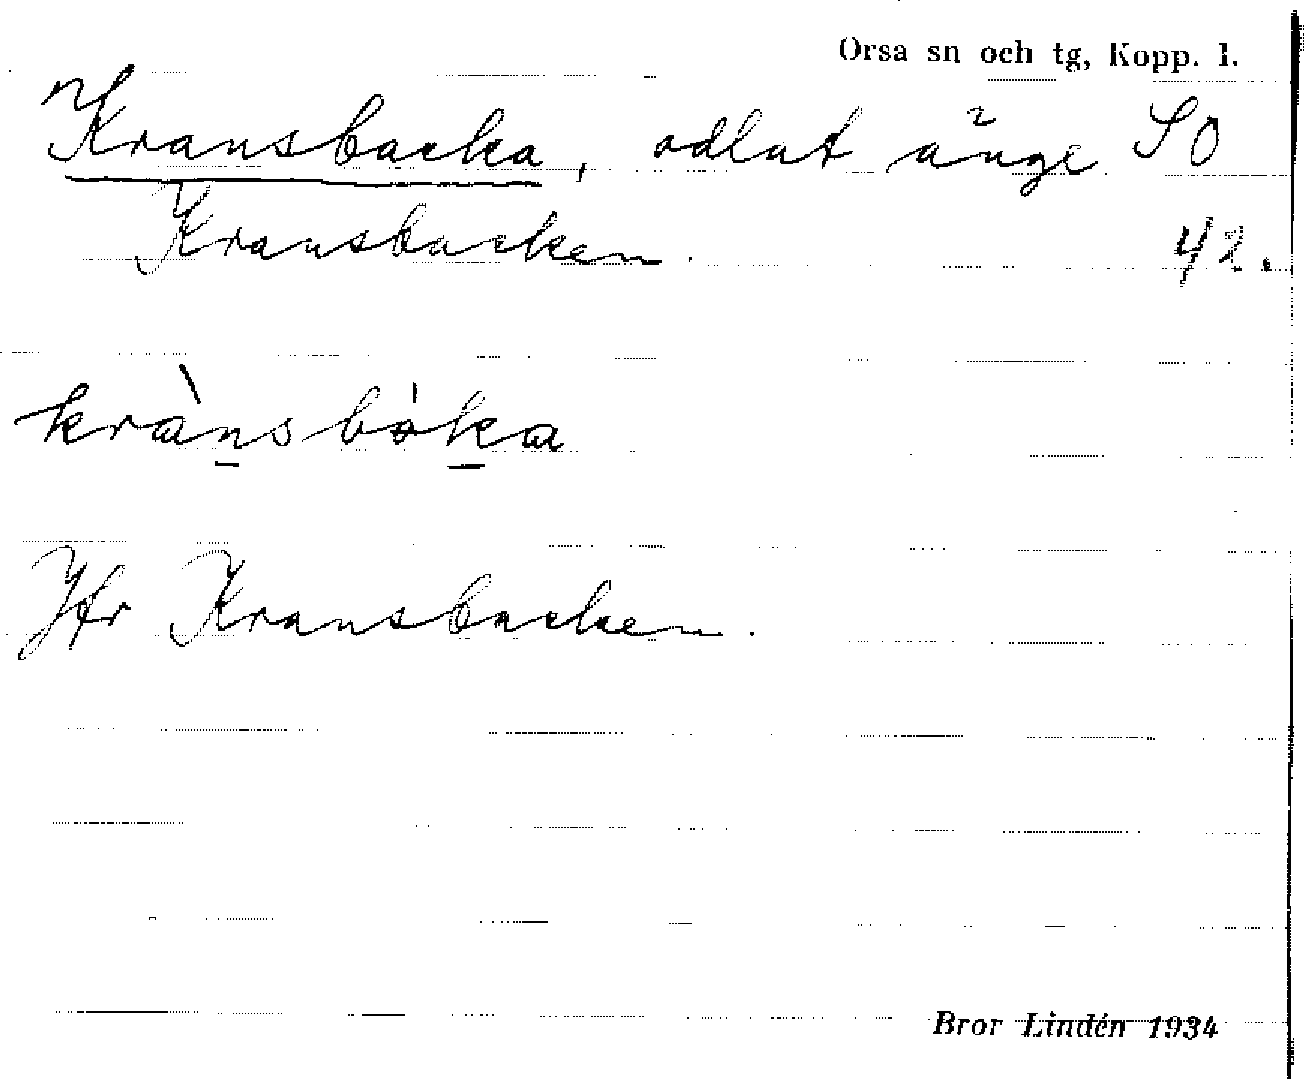 Orsa sn och tg, Kopp. l.
Kransbacka, odlat änge SO
Kransbacken. 42.
krànsbȯka
Jfr Kransbacken.
Bror Lindén 1934